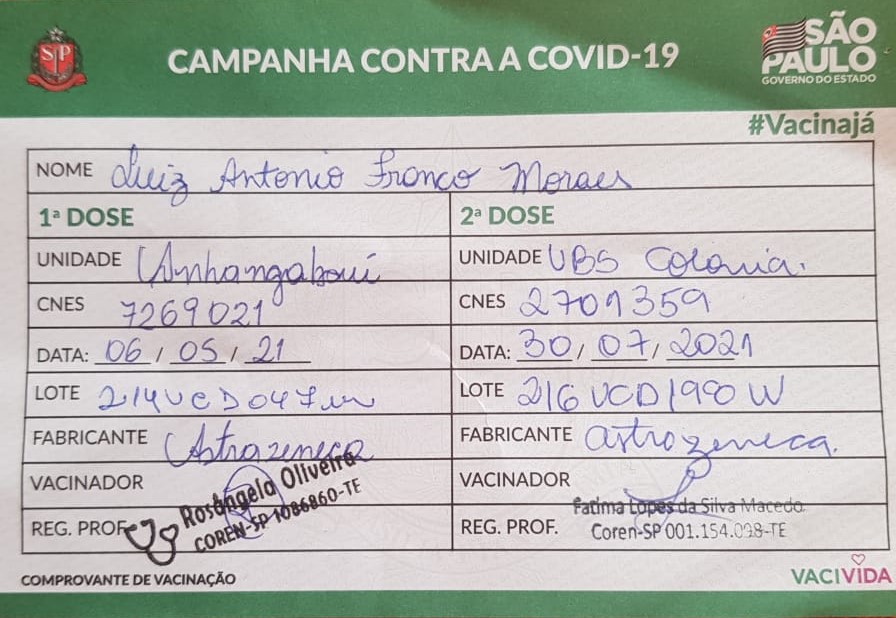 SP
CAMPANHA CONTRA A COVID-19
SÃO
PAULO
GOVERNO DO ESTADO
#Vacinajá
NOME Luiz Antonio Franco Moraes
1ª DOSE
2ª DOSE
UNIDADE Anhangabaú
UNIDADE UBS Colonia.
CNES 7269021
CNES 2701359
DATA: 06 / 05 / 21
DATA: 30 / 07 / 2021
LOTE 214VCD047W
LOTE 216VCD190W
FABRICANTE Astrazeneca
FABRICANTE astrozeneca.
VACINADOR
VACINADOR
Rosângela Oliveira
Fatima Lopes da Silva Macedo
REG. PROF.
COREN-SP 1086860-TE
REG. PROF.
Coren-SP 001.154.098-TE
COMPROVANTE DE VACINAÇÃO
VACIVIDA